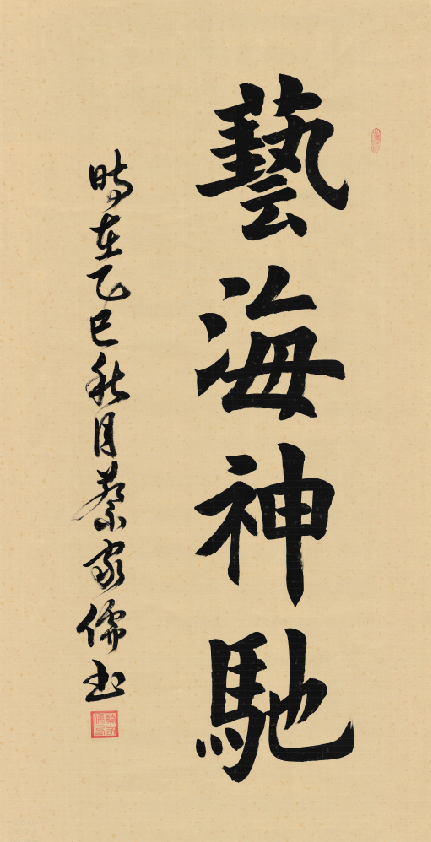 藝海神馳
時在乙巳秋月蔡家儒书